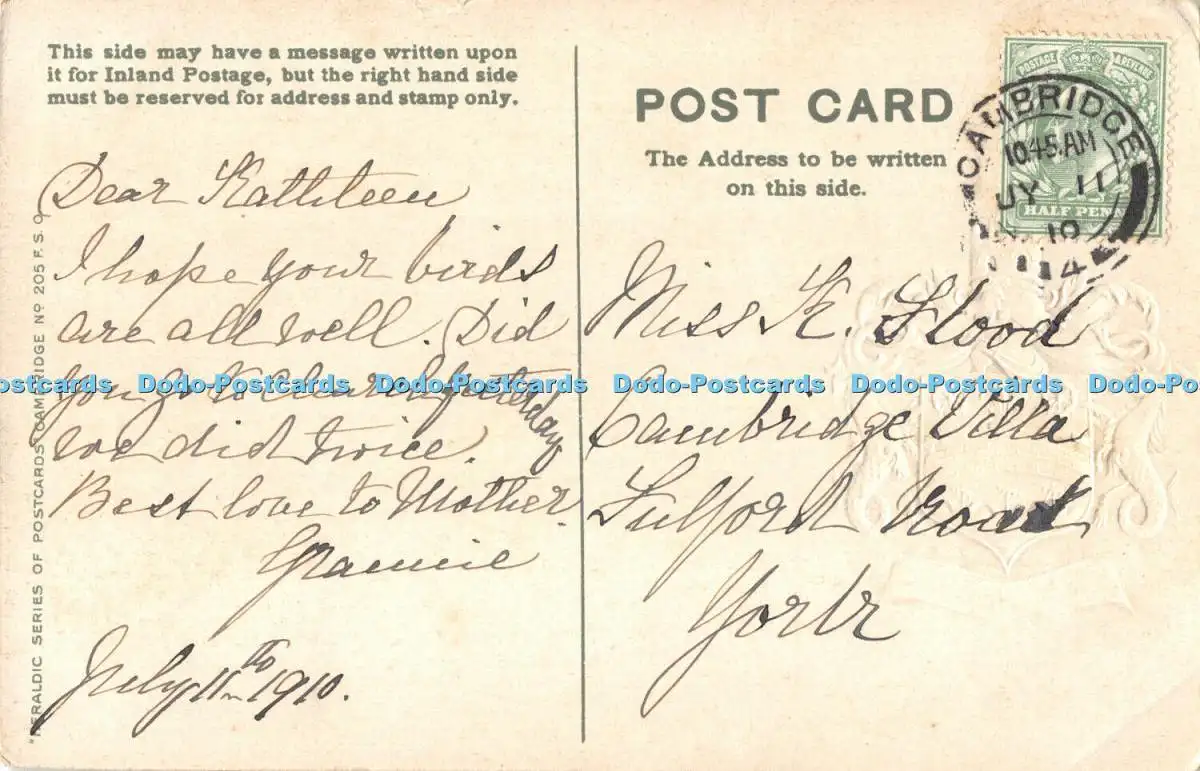 This side may have a message written upon
it for Inland Postage, but the right hand side
must be reserved for address and stamp only.
Dear Kathleen
I hope your birds
are all well. Did
you go to Church yesterday
we did twice.
Best love to Mother
Grannie
July 11th 1910.
"HERALDIC SERIES OF POSTCARDS CAMBRIDGE No 205 F.S.O
POST CARD
The Address to be written
on this side.
POSTAGE & REVENUE
HALF PEN
CAMBRIDGE
10.45 AM
JY 11
10
14
Miss K. Flood
Cambridge Villa
Fulford Road
York
Dodo-Postcards Dodo-Postcards Dodo-Postcards Dodo-Postcards Dodo-Postcards